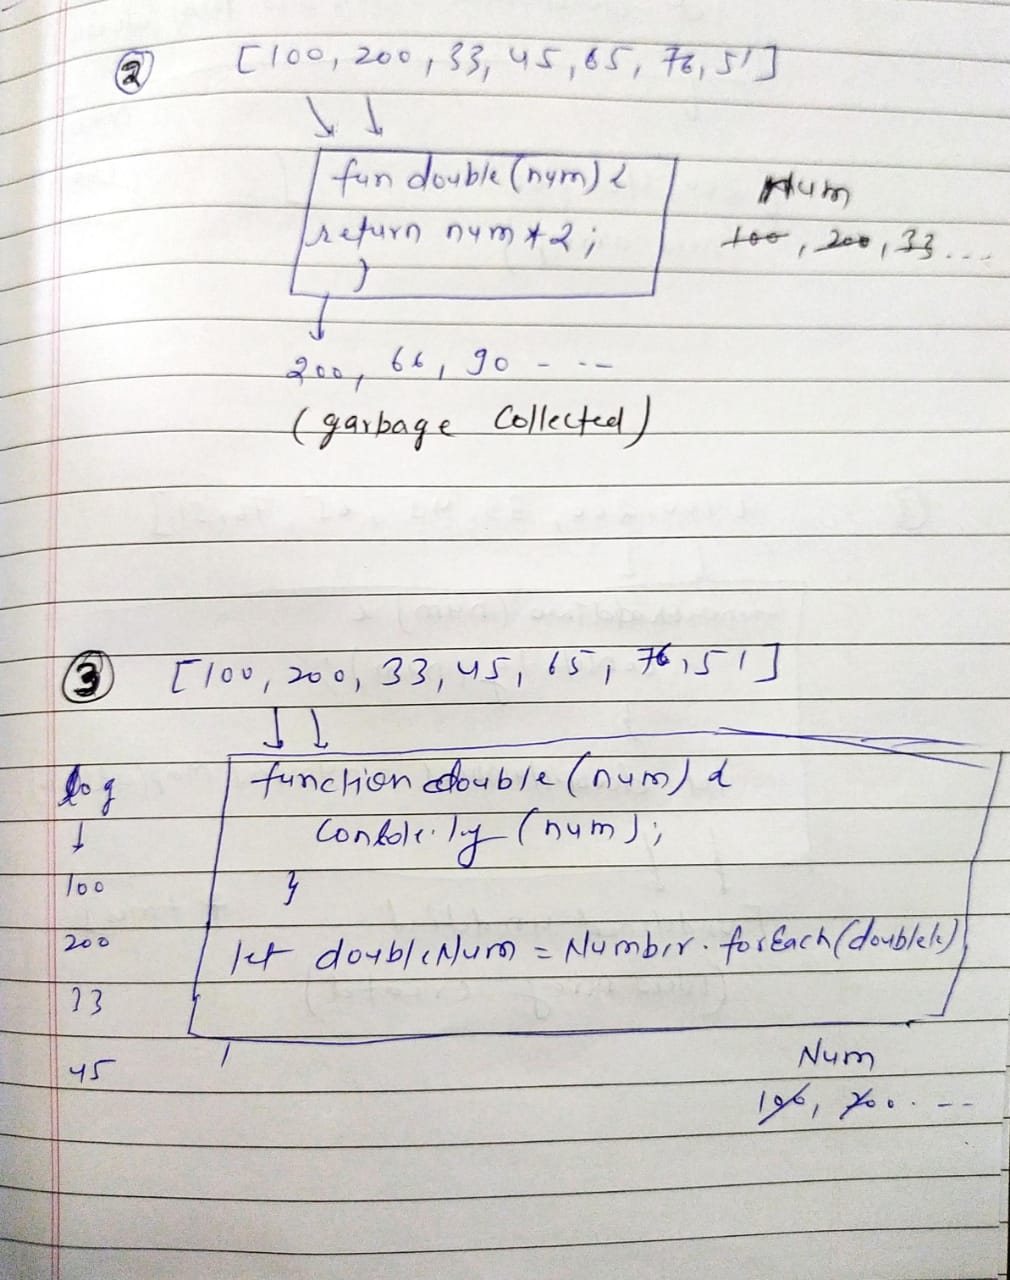 ② [100, 200, 33, 45, 65, 76, 51]
fun double (num) {
return num * 2;
}
Num
100, 200, 33 ...
200, 66, 90 - - --
(garbage Collected)
③ [100, 200, 33, 45, 65, 76, 51]
function double (num) {
console.log (num);
}
let doubleNum = Number. forEach (double)
log
100
200
33
45
Num
100, 200. - --